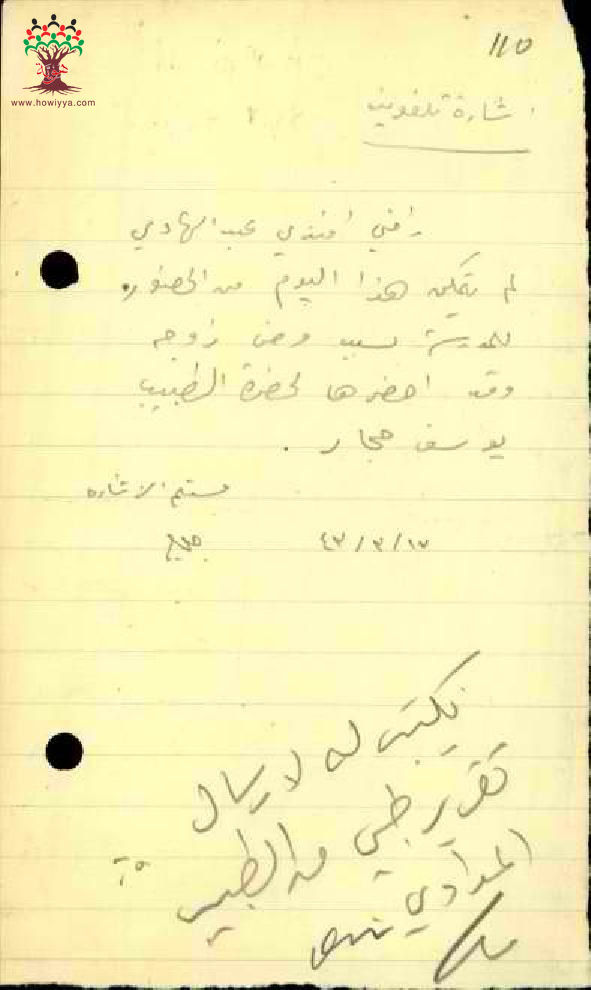 www.howiyya.com
١١٥
اشارة تلفون
افندي عبد الهادي
لم يتمكن هذا اليوم من الحضور
للمدرسة بسبب مرض زوجه
وقد احضرها لحضرة الطبيب
يوسف حجار .
مستلم الاشاره
١٧/٣/٤٣
يكتب له لارسال
تقرير طبي من الطبيب
المداوي